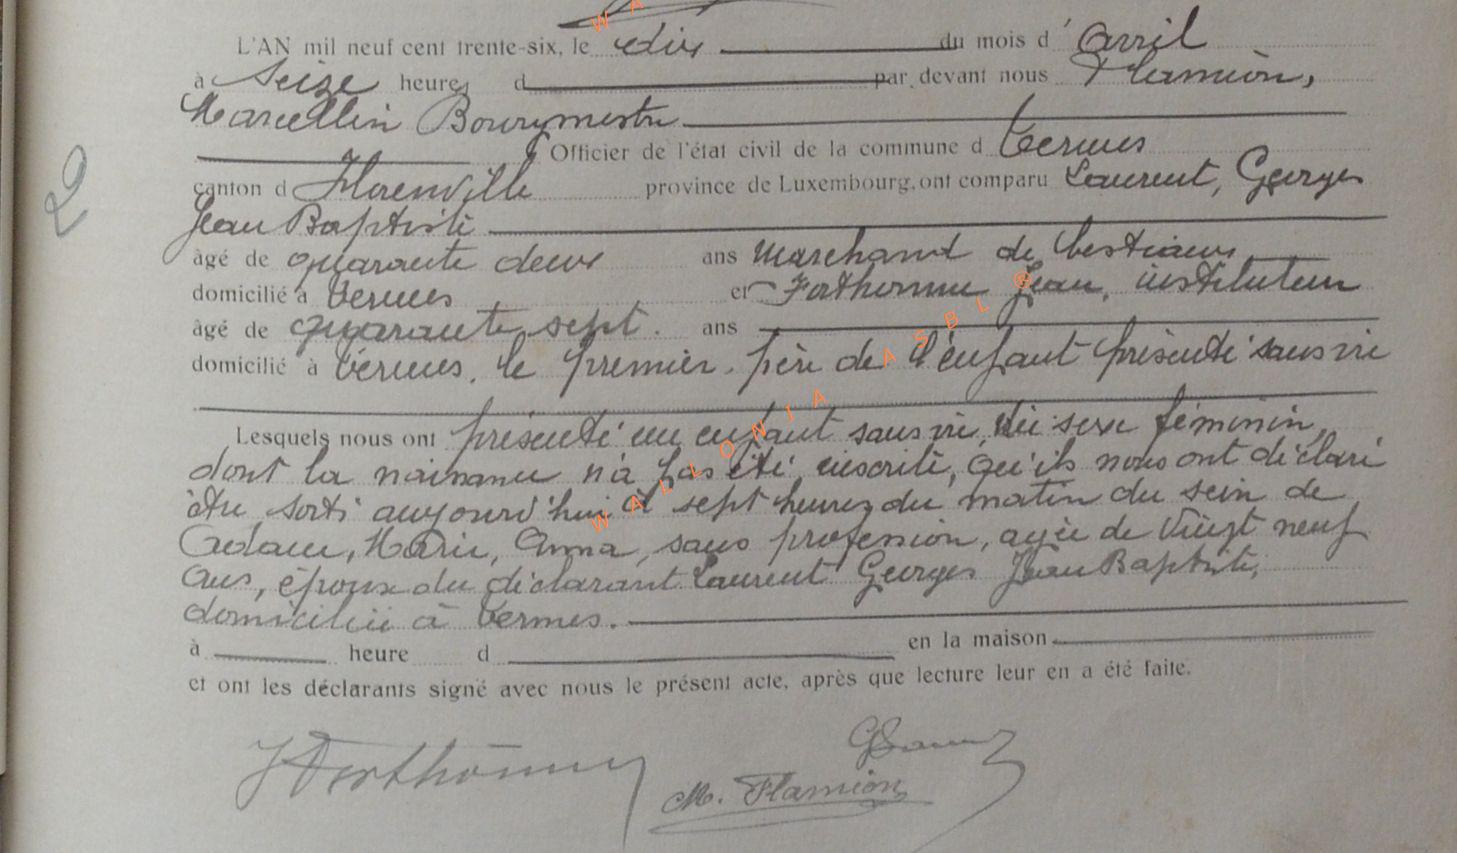 L'AN mil neuf cent trente-six, le dix du mois d'Avril
à Seize heures d par devant nous Flamion,
Marcellin Bourgmestre
Officier de l'état civil de la commune d Termes
canton d Florenville province de Luxembourg, ont comparu Laurent, Georges
Jean Baptiste
âgé de quarante deux ans Marchand de bestiaux
domicilié à Termes et Forthomme Jean, instituteur
âgé de quarante sept. ans
domicilié à Termes, le premier père de l'enfant présenté sans vie
Lesquels nous ont présenté un enfant sans vie, du sexe féminin,
dont la naissance n'a pas été inscrite, qu'ils nous ont déclaré
être sorti aujourd'hui à sept heures du matin du sein de
Adam, Marie, Anna, sans profession, agée de vingt neuf
ans, épouse du déclarant Laurent Georges Jean Baptiste,
domiciliée à Termes.
à heure d en la maison
et ont les déclarants signé avec nous le présent acte, après que lecture leur en a été faite.
J Forthomme
GLaurent
M. Flamion
2
WALLONIA ASBL ©